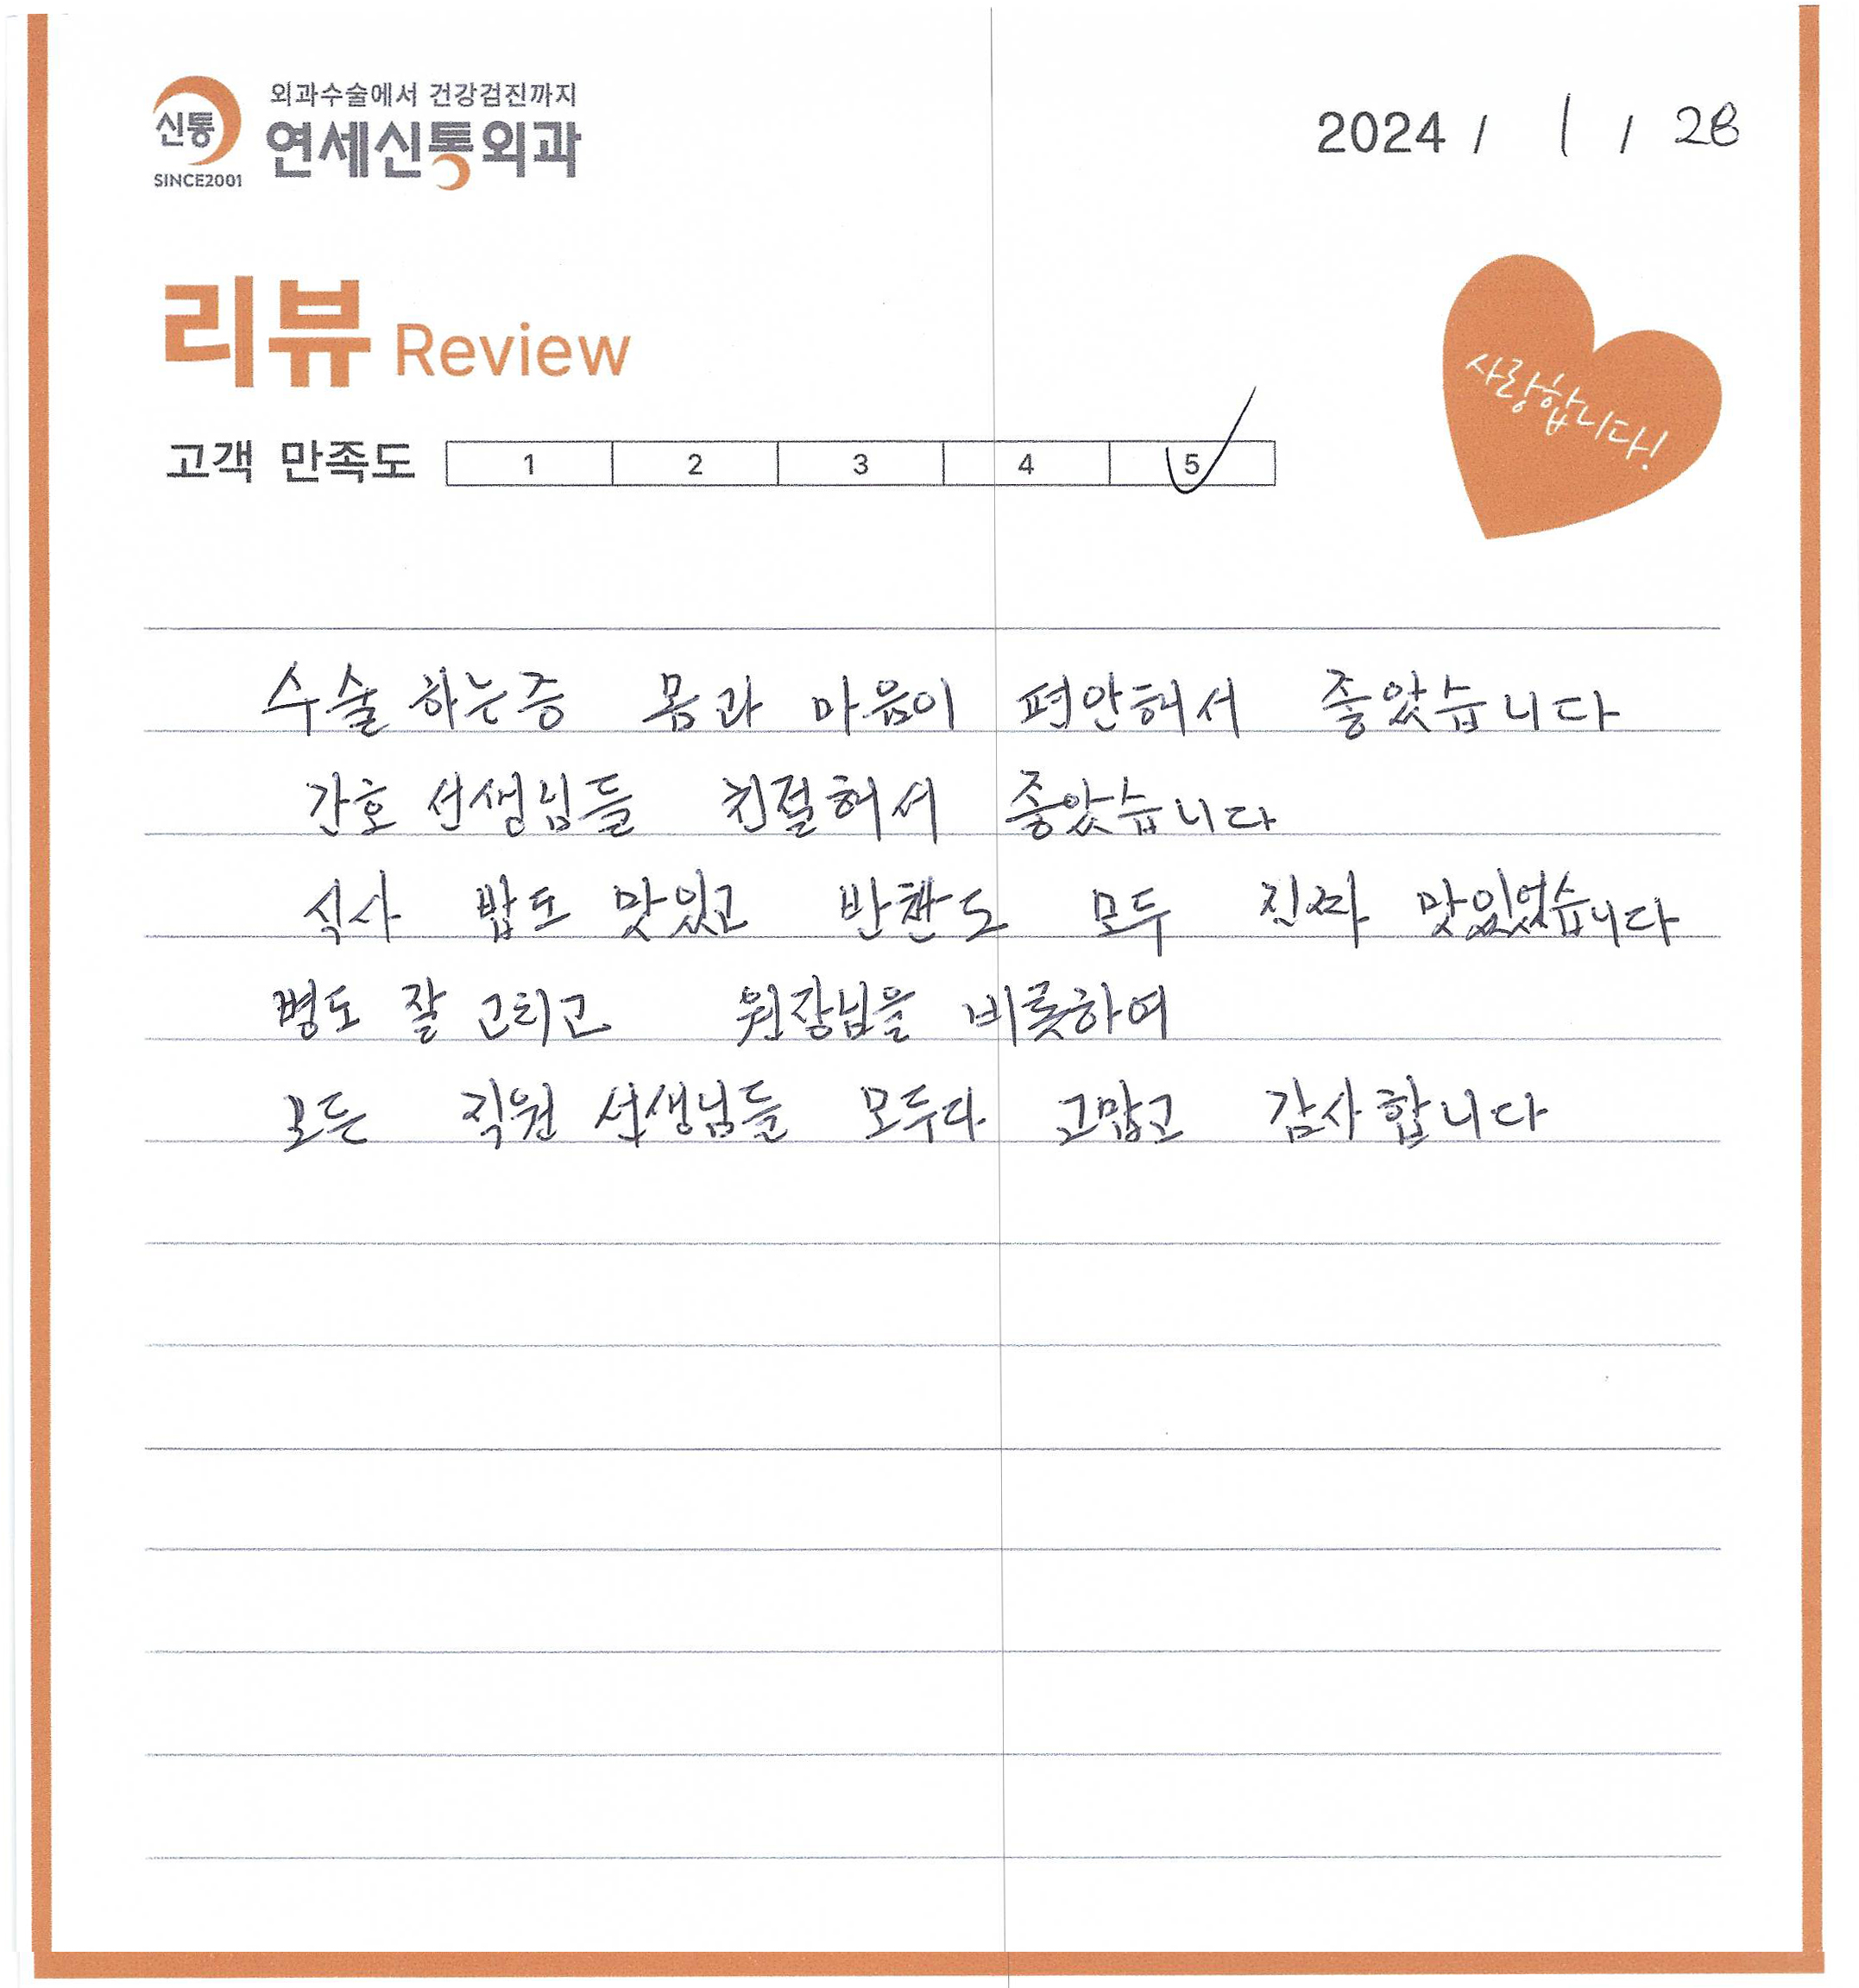 외과수술에서 건강검진까지
신통
연세신통외과
SINCE2001
2024 / 1 / 28
리뷰 Review
사랑합니다!
고객 만족도 1 2 3 4 5
수술 하는중 몸과 마음이 편안허서 좋았습니다
간호 선생님들 친절허서 좋았습니다
식사 밥도 맛있고 반찬도 모두 진짜 맛있었습니다
병도 잘 고티고 원장님을 비롯하여
모든 직원 선생님들 모두다 고맙고 감사합니다